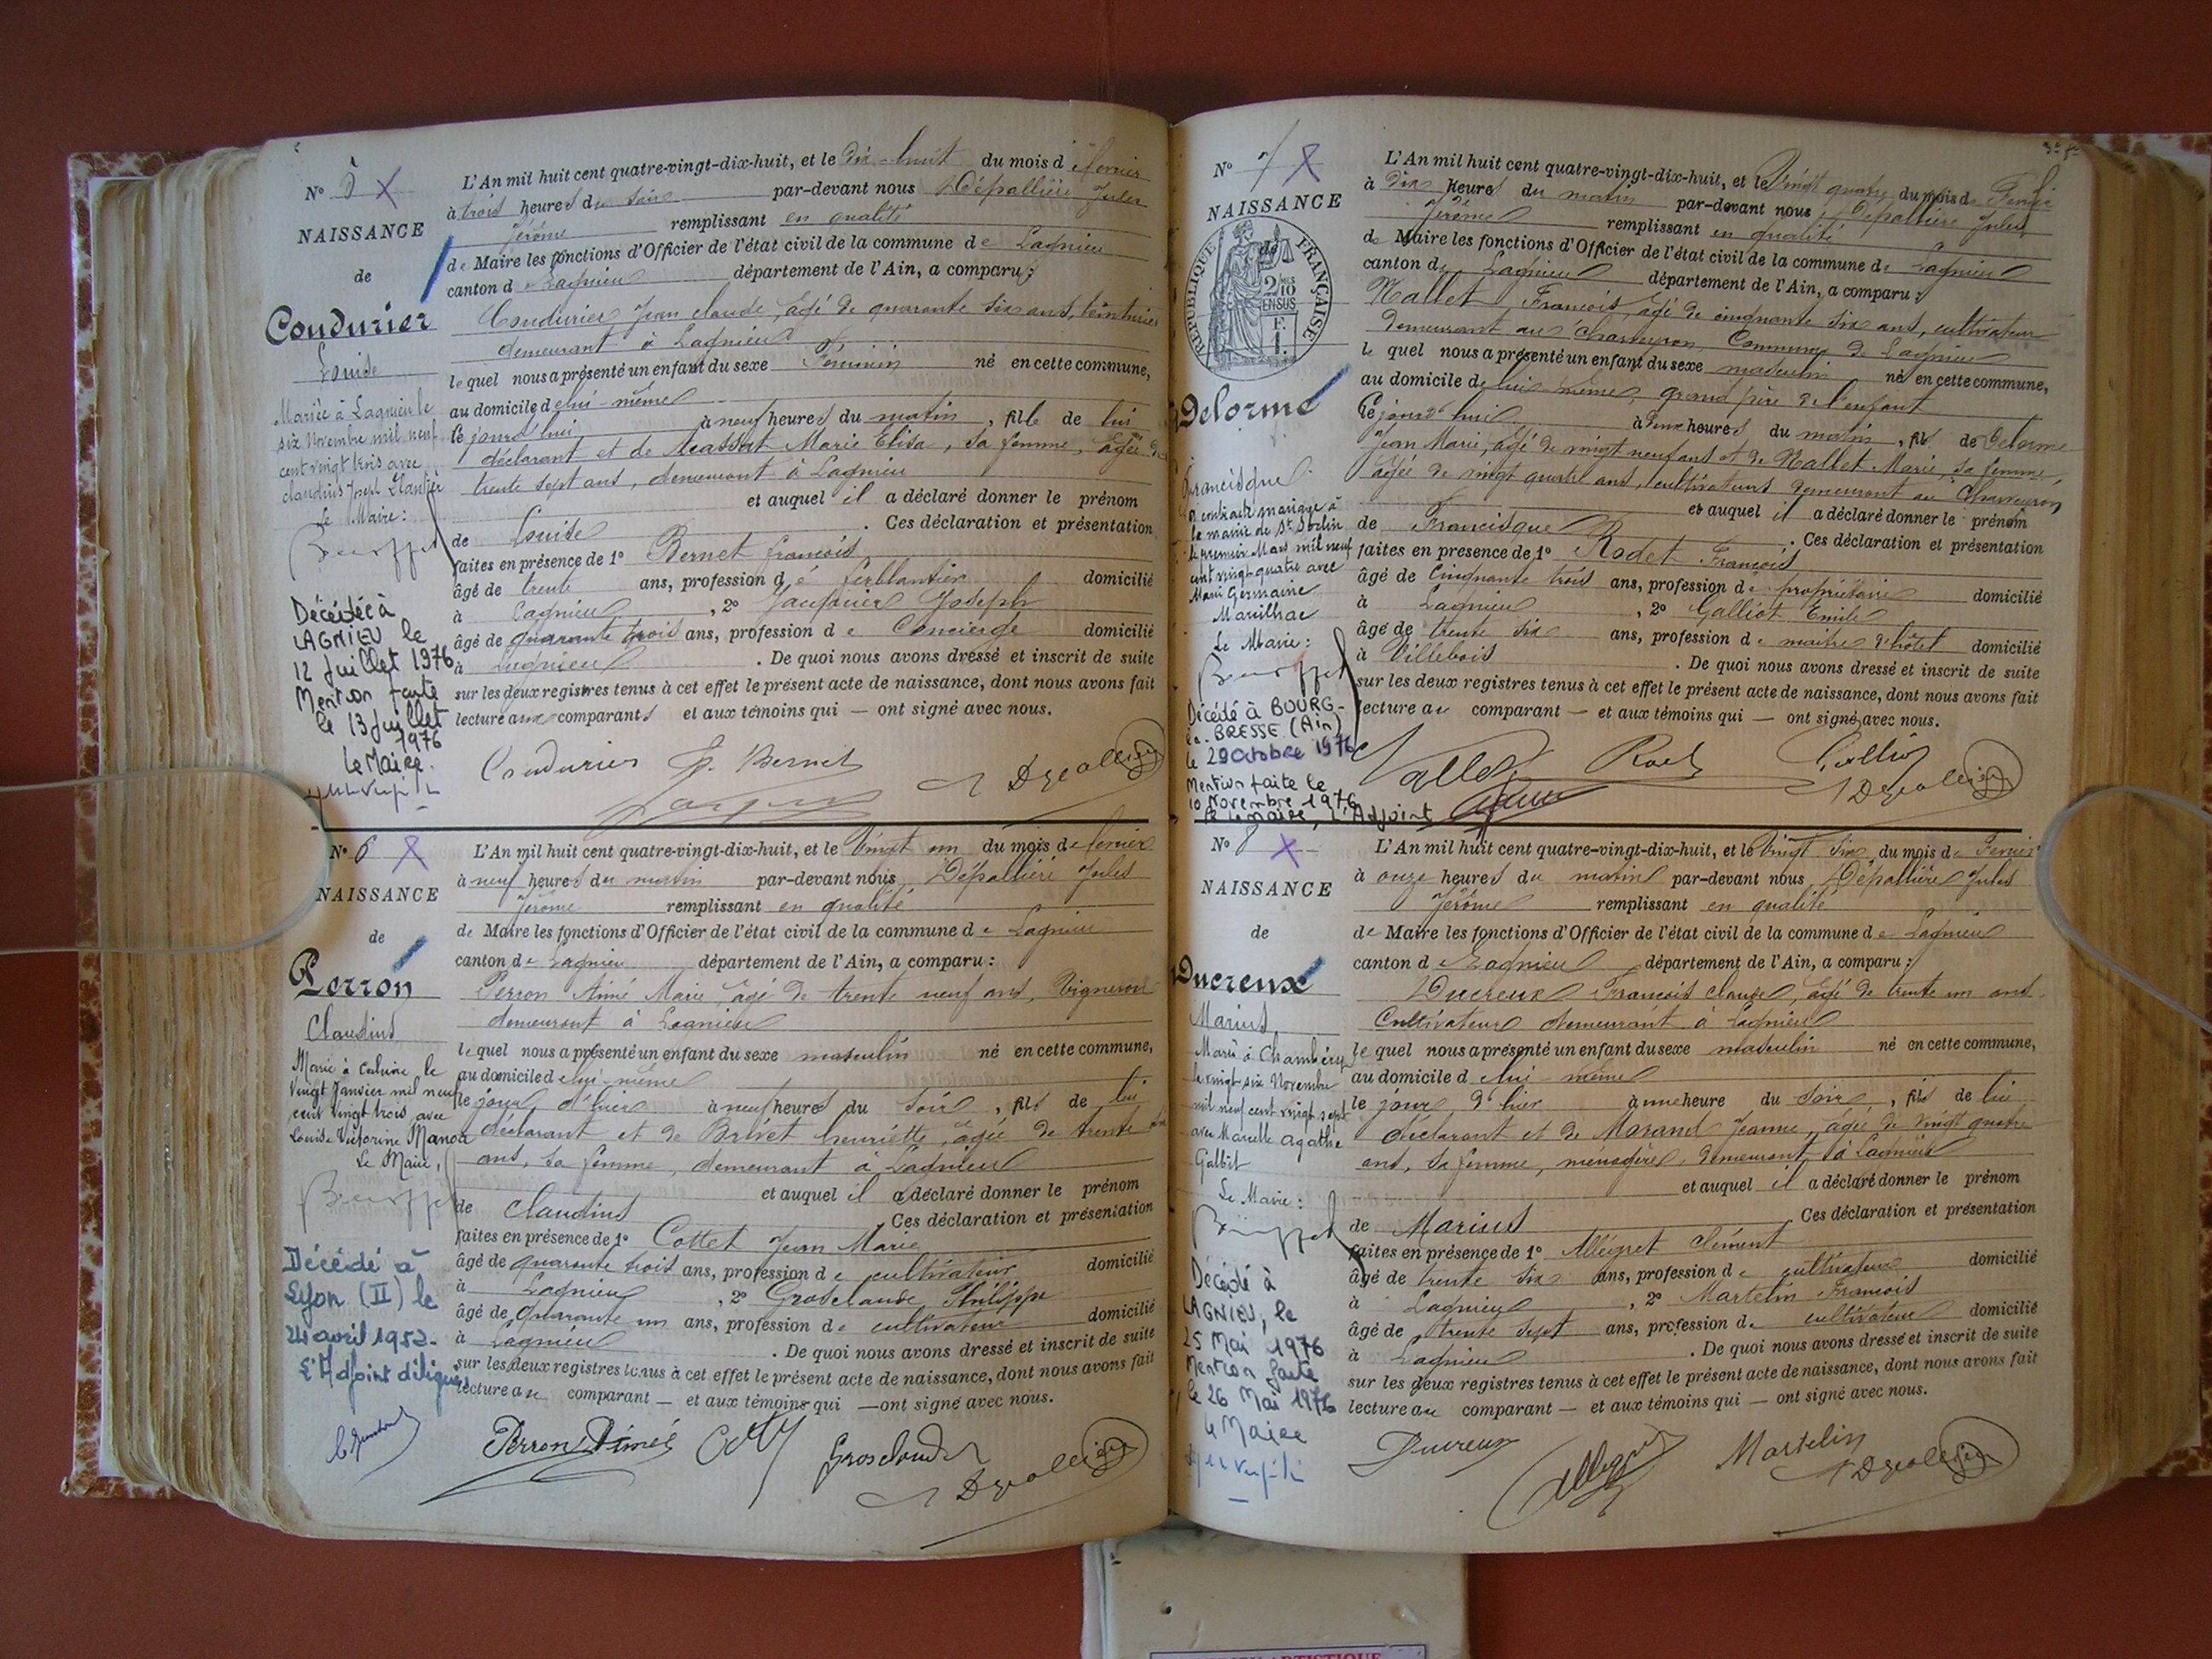 N° 5 X
NAISSANCE
de
Coudurier
Louise
Mariée à Lagnieu le
six Novembre mil neuf
cent vingt trois avec
claudius Joseph
Le Maire :
Décédée à
LAGNIEU le
12 Juillet 1976
Mention faite
le 13 Juillet
1976
Le Maire.
L'An mil huit cent quatre-vingt-dix-huit, et le Dix-huit du mois de fevrier
à trois heures du soir par-devant nous Dépallière Jules
Jérôme remplissant en qualité
de Maire les fonctions d'Officier de l'état civil de la commune de Lagnieu
canton de Lagnieu département de l'Ain, a comparu :
Coudurier Jean claude, âgé de quarante six ans, teinturier
demeurant à Lagnieu
lequel nous a présenté un enfant du sexe Féminin né en cette commune,
au domicile de lui-même
le jourd'hui à neuf heures du matin, fille de lui
déclarant et de Massat Marie Elisa, sa femme, âgée de
trente sept ans, demeurant à Lagnieu
et auquel il a déclaré donner le prénom
de Louise. Ces déclaration et présentation
faites en présence de 1° Bernet françois
âgé de trente ans, profession de ferblantier domicilié
à Lagnieu, 2° Joseph
âgé de quarante trois ans, profession de Concierge domicilié
à Lagnieu. De quoi nous avons dressé et inscrit de suite
sur les deux registres tenus à cet effet le présent acte de naissance, dont nous avons fait
lecture aux comparants et aux témoins qui — ont signé avec nous.
Coudurier Bernet
N° 6 X
NAISSANCE
de
Perron
Claudius
Marié à Caluire le
vingt Janvier mil neuf
cent vingt trois avec
Louise Victorine
Le Maire,
Décédé à
Lyon (II) le
24 avril 1952.
L'Adjoint délégué
L'An mil huit cent quatre-vingt-dix-huit, et le Vingt un du mois de fevrier
à neuf heures du matin par-devant nous Dépallière Jules
Jérôme remplissant en qualité
de Maire les fonctions d'Officier de l'état civil de la commune de Lagnieu
canton de Lagnieu département de l'Ain, a comparu :
Perron Aimé Marie, âgé de trente neuf ans, Vigneron
demeurant à Lagnieu
lequel nous a présenté un enfant du sexe masculin né en cette commune,
au domicile de lui-même
le jour d'hier à neuf heures du soir, fils de lui
déclarant et de Brivet henriette, âgée de trente
ans, sa femme, demeurant à Lagnieu
et auquel il a déclaré donner le prénom
de Claudius Ces déclaration et présentation
faites en présence de 1° Cottet Jean Marie
âgé de quarante trois ans, profession de cultivateur domicilié
à Lagnieu, 2° Grosclaude Philippe
âgé de Quarante un ans, profession de cultivateur domicilié
à Lagnieu. De quoi nous avons dressé et inscrit de suite
sur les deux registres tenus à cet effet le présent acte de naissance, dont nous avons fait
lecture au comparant — et aux témoins qui — ont signé avec nous.
Perron Aimé Grosclaude
N° 7 X
NAISSANCE
de
RÉPUBLIQUE FRANÇAISE
2/10
EN SUS
Delorme
Francisque
a contracté mariage à
la mairie de St Sorlin
le premier Mars mil neuf
cent vingt quatre avec
Marie Germaine
Marilhac
Le Maire :
Décédé à BOURG-
en-BRESSE (Ain)
le 29 Octobre 1976
Mention faite le
10 Novembre 1976
Le Maire, L'Adjoint
L'An mil huit cent quatre-vingt-dix-huit, et le Vingt quatre du mois de Fevrier
à Dix heures du matin par-devant nous Dépallière Jules
Jérôme remplissant en qualité
de Maire les fonctions d'Officier de l'état civil de la commune de Lagnieu
canton de Lagnieu département de l'Ain, a comparu :
Nallet François, âgé de cinquante six ans, cultivateur
demeurant au Charveyron Commune de Lagnieu
lequel nous a présenté un enfant du sexe masculin né en cette commune,
au domicile de lui-même, grand père de l'enfant
le jourd'hui à deux heures du matin, fils de Delorme
Jean Marie, âgé de vingt neuf ans et de Nallet Marie, sa femme,
âgée de vingt quatre ans, cultivateurs demeurant au Charveyron
et auquel il a déclaré donner le prénom
de Francisque. Ces déclaration et présentation
faites en présence de 1° Rodet François
âgé de Cinquante trois ans, profession de propriétaire domicilié
à Lagnieu, 2° Galliot Emile
âgé de trente six ans, profession de maître d'hôtel domicilié
à Villebois. De quoi nous avons dressé et inscrit de suite
sur les deux registres tenus à cet effet le présent acte de naissance, dont nous avons fait
lecture au comparant — et aux témoins qui — ont signé avec nous.
Nallet
N° 8 X
NAISSANCE
de
Ducreux
Marius
Marié à Chambéry
le vingt six Novembre
mil neuf cent vingt sept
avec Marcelle Agathe
Galbit
Le Maire :
Décédé à
LAGNIEU, le
25 Mai 1976
Mention faite
le 26 Mai 1976
Le Maire
L'An mil huit cent quatre-vingt-dix-huit, et le Vingt Six du mois de Fevrier
à onze heures du matin par-devant nous Dépallière Jules
Jérôme remplissant en qualité
de Maire les fonctions d'Officier de l'état civil de la commune de Lagnieu
canton de Lagnieu département de l'Ain, a comparu :
Ducreux François Claude, âgé de trente un ans
Cultivateur demeurant à Lagnieu
lequel nous a présenté un enfant du sexe masculin né en cette commune,
au domicile de lui même
le jour d'hier à une heure du soir, fils de lui
déclarant et de Morand Jeanne, âgée de vingt quatre
ans, sa femme, ménagère, demeurant à Lagnieu
et auquel il a déclaré donner le prénom
de Marius Ces déclaration et présentation
faites en présence de 1° Allégret Clément
âgé de trente six ans, profession de cultivateur domicilié
à Lagnieu, 2° Martelin François
âgé de trente sept ans, profession de cultivateur domicilié
à Lagnieu. De quoi nous avons dressé et inscrit de suite
sur les deux registres tenus à cet effet le présent acte de naissance, dont nous avons fait
lecture au comparant — et aux témoins qui — ont signé avec nous.
Ducreux Martelin